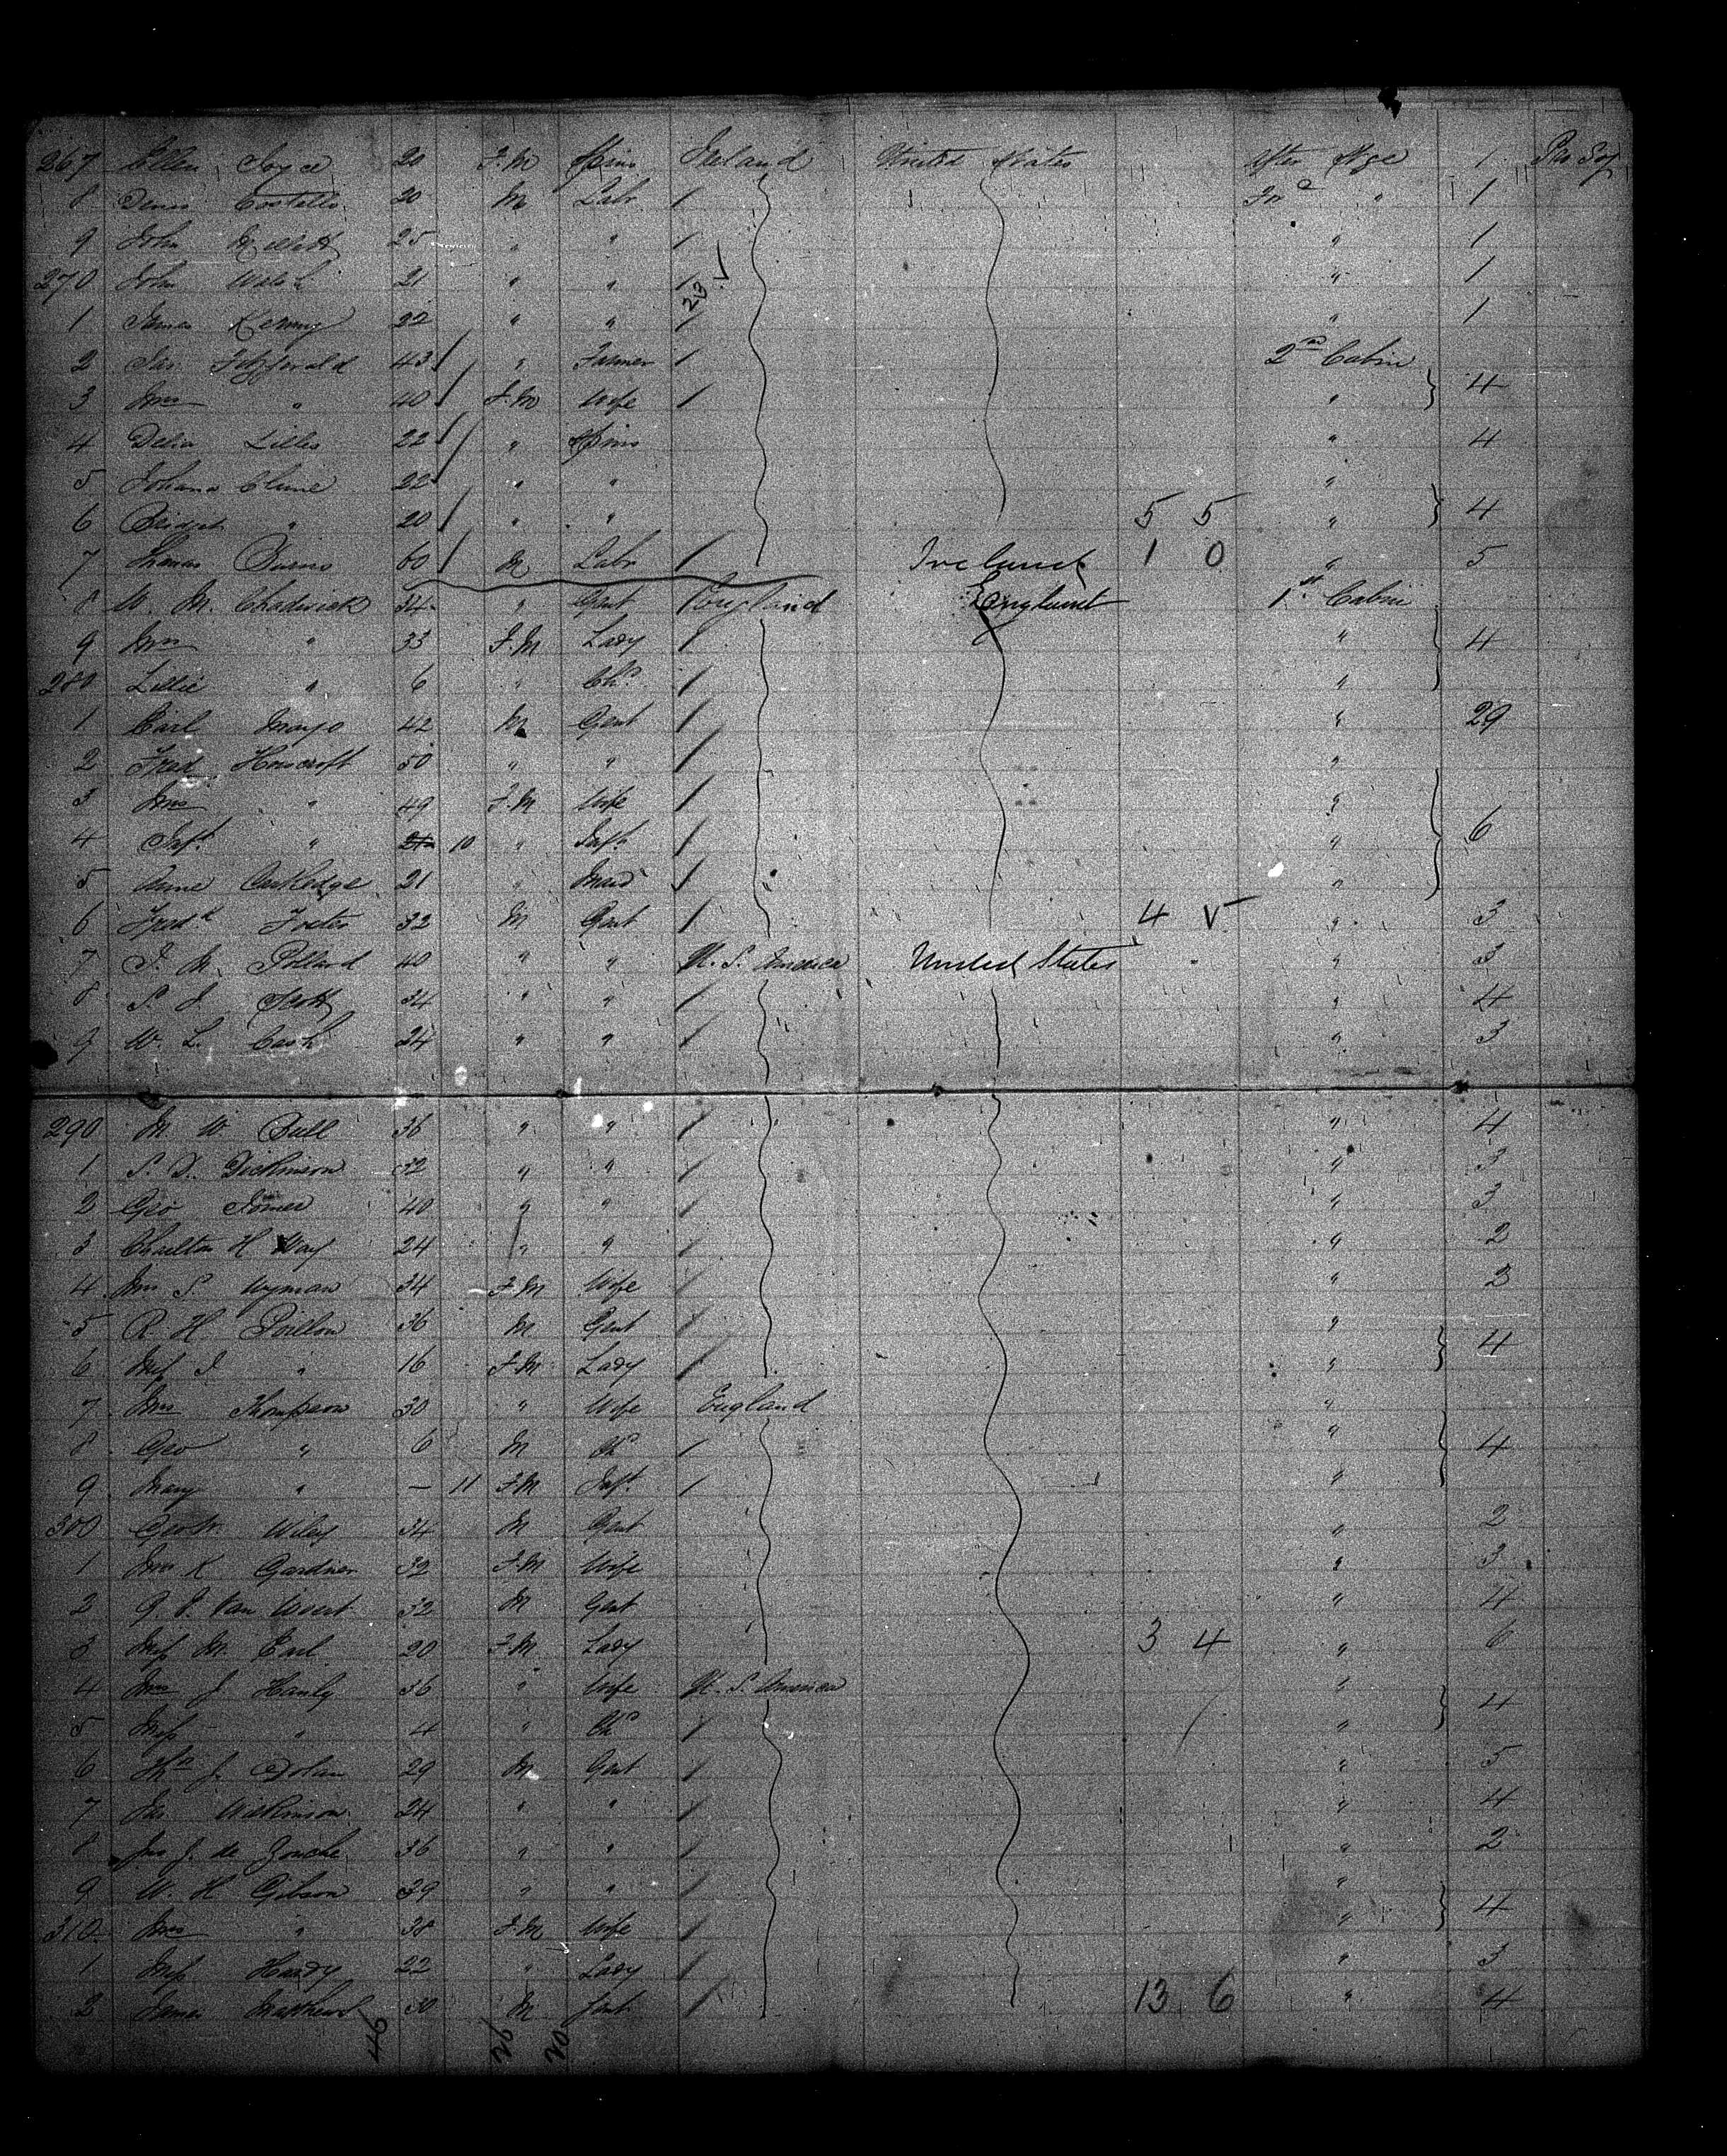 267 Ellen Joyce 20 F.M Spins Ireland United States After Age 1 Pro Soj
8 Denis Costello 20 M Labr / Frd " 1
9 John 25 " " / " 1
270 John Walsh 21 " " / " 1
23
1 James Kenny 22 " " / " 1
2 Jas Fitzgerald 43 / " Farmer / 2nd Cabin
3 Mrs " 40 / F.M Wife / " 4
4 Delia Lilles 22 / " Spins " 4
5 Johana Clune 22 / " " "
6 Bridget " 20 / " " 5 5 " 4
7 Thomas Burns 60 / M Labr / Ireland 1 0 " 5
8 W. M. Chadwick 34 " Gent / England England 1st Cabin
9 Mrs " 33 F.M Lady / " 4
280 Lillie " 6 " Chd /  "
1 Carl Mayo 42 M Gent / " 29
2 Fred Howcroft 50 " " / "
3 Mrs " 49 F.M Wife / "
4 Inft " 10 " Inft / " 6
5 Anne Cartledge 21 " Maid / "
6 Fredk Foster 32 M Gent / 4 5 " 3
7 J. M. Pollard 40 " " U. S. America United States " 3
8 S. J. Scott 34 " " / " 4
9 W. L. Cash 24 " " / " 3
290 M. W. Bull 36 " " / " 4
1 S. D. Dickinson 32 " " / " 3
2 Geo Jones 40 " " / " 3
3 Charlton H Way 24 " " / " 2
4 Mrs S. Wyman 34 F.M Wife / " 3
5 R. H Poillon 36 M Gent / "
6 Miss J. " 16 F.M Lady / " 4
7 Mrs Thompson 30 " Wife England "
8 Geo " 6 M Chd / " 4
9 Mary " — 11 F.M Inft / "
300 Geo W. Wiley 34 M Gent " 2
1 Mrs K Gardner 32 F.M Wife " 3
2 G. J. Van Wort 32 M Gent " 4
3 Miss M. Earl 20 F.M Lady 3 4 " 6
4 Mrs J Hanly 36 " Wife U. S. America "
5 Miss " 4 " Chd / " 4
6 J. Dolan 29 M Gent / " 5
7 Jas Wilkinson 24 " " / " 4
8 Jno J. de Zouche 36 " " / " 2
9 W. H Gibson 39 " " / "
310 Mrs " 38 F.M Wife / " 4
1 Miss Hardy 22 " Lady / " 3
2 James Matthews 30 M Gent / 13 6 " 4
46 26 20